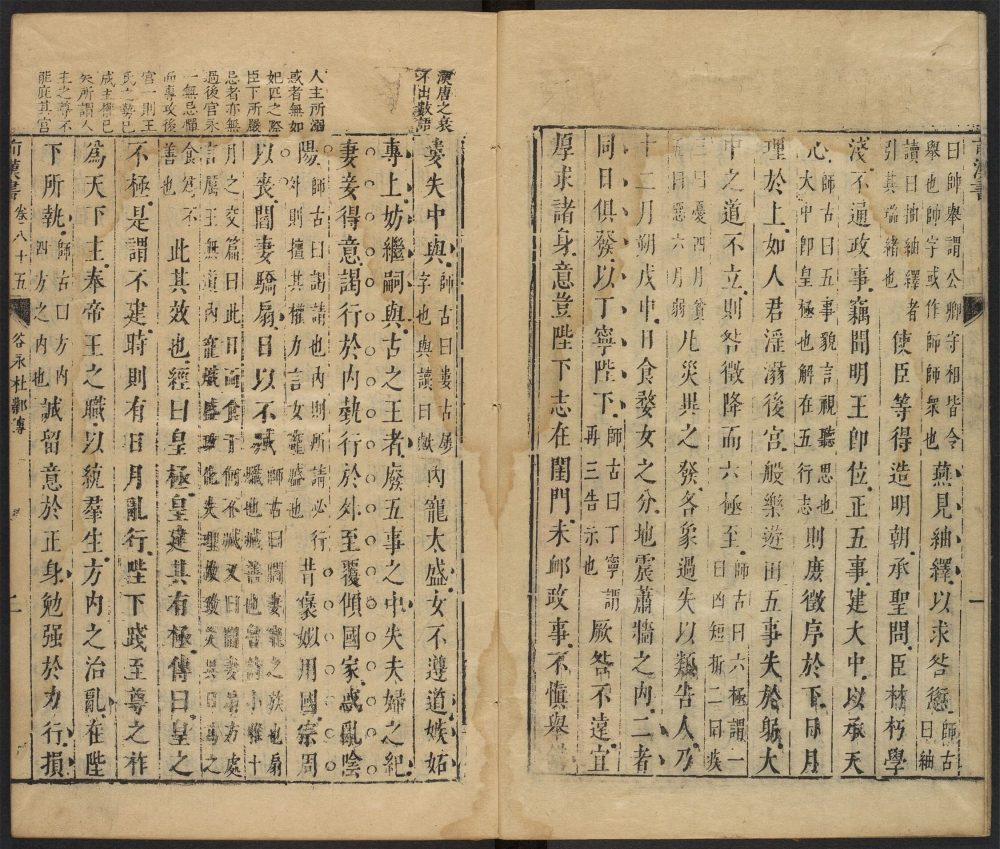 曰師舉謂公卿守相皆令
舉也師字或作師師衆也
燕見紬繹以求咎愆
師古
曰紬
讀曰抽紬繹者
引其端緒也
使臣等得造明朝承聖問臣材朽學
淺不通政事竊聞明王即位正五事建大中以承天
心
師古曰五事貌言視聽思也
大中即皇極也解在五行志
則庶徵序於下日月
理於上如人君淫溺後宮般樂遊田五事失於躬大
中之道不立則咎徵降而六極至
師古曰六極謂一
曰凶短折二曰疾
三曰憂四曰貧
五曰惡六曰弱
凡災異之發各象過失以類告人乃
十二月朔戊申日食婺女之分地震蕭牆之內二者
同日俱發以丁寧陛下
師古曰丁寧謂
再三告示也
厥咎不遠宜
厚求諸身意豈陛下志在閨門未卹政事不慎舉
一
漢唐之衰
不出數語
人主所溺
或者無如
妃匹之際
臣下所嚴
忌者亦無
過後宮永
一無忌憚
而專攻後
宮一則王
氏之勢已
成主權已
矢所謂人
主之尊不
能庇其宮
婁失中與
師古曰婁古屢
字也與讀曰歟
內寵太盛女不遵道嫉妬
專上妨繼嗣與古之王者廢五事之中失夫婦之紀
妻妾得意謁行於內埶行於外至覆傾國家惑亂陰
陽
師古曰謁請也內則所請必行
外則擅其權力言女寵盛也
昔褒姒用國宗周
以喪閻妻驕扇日以不臧
師古曰閻嬖寵之族也扇
熾也臧善也魯詩小雅十
月之交篇曰此日而食于何不臧又曰閻妻扇方處
言厲王無道內寵熾盛政化失理故致災異日為之
食為不
善也
此其效也經曰皇極皇建其有極傳曰皇之
不極是謂不建時則有日月亂行陛下踐至尊之祚
為天下主奉帝王之職以統羣生方內之治亂在陛
下所執
師古曰方內
四方之內也
誠留意於正身勉强於力行損
前漢書 卷八十五 谷永杜鄴傳 二